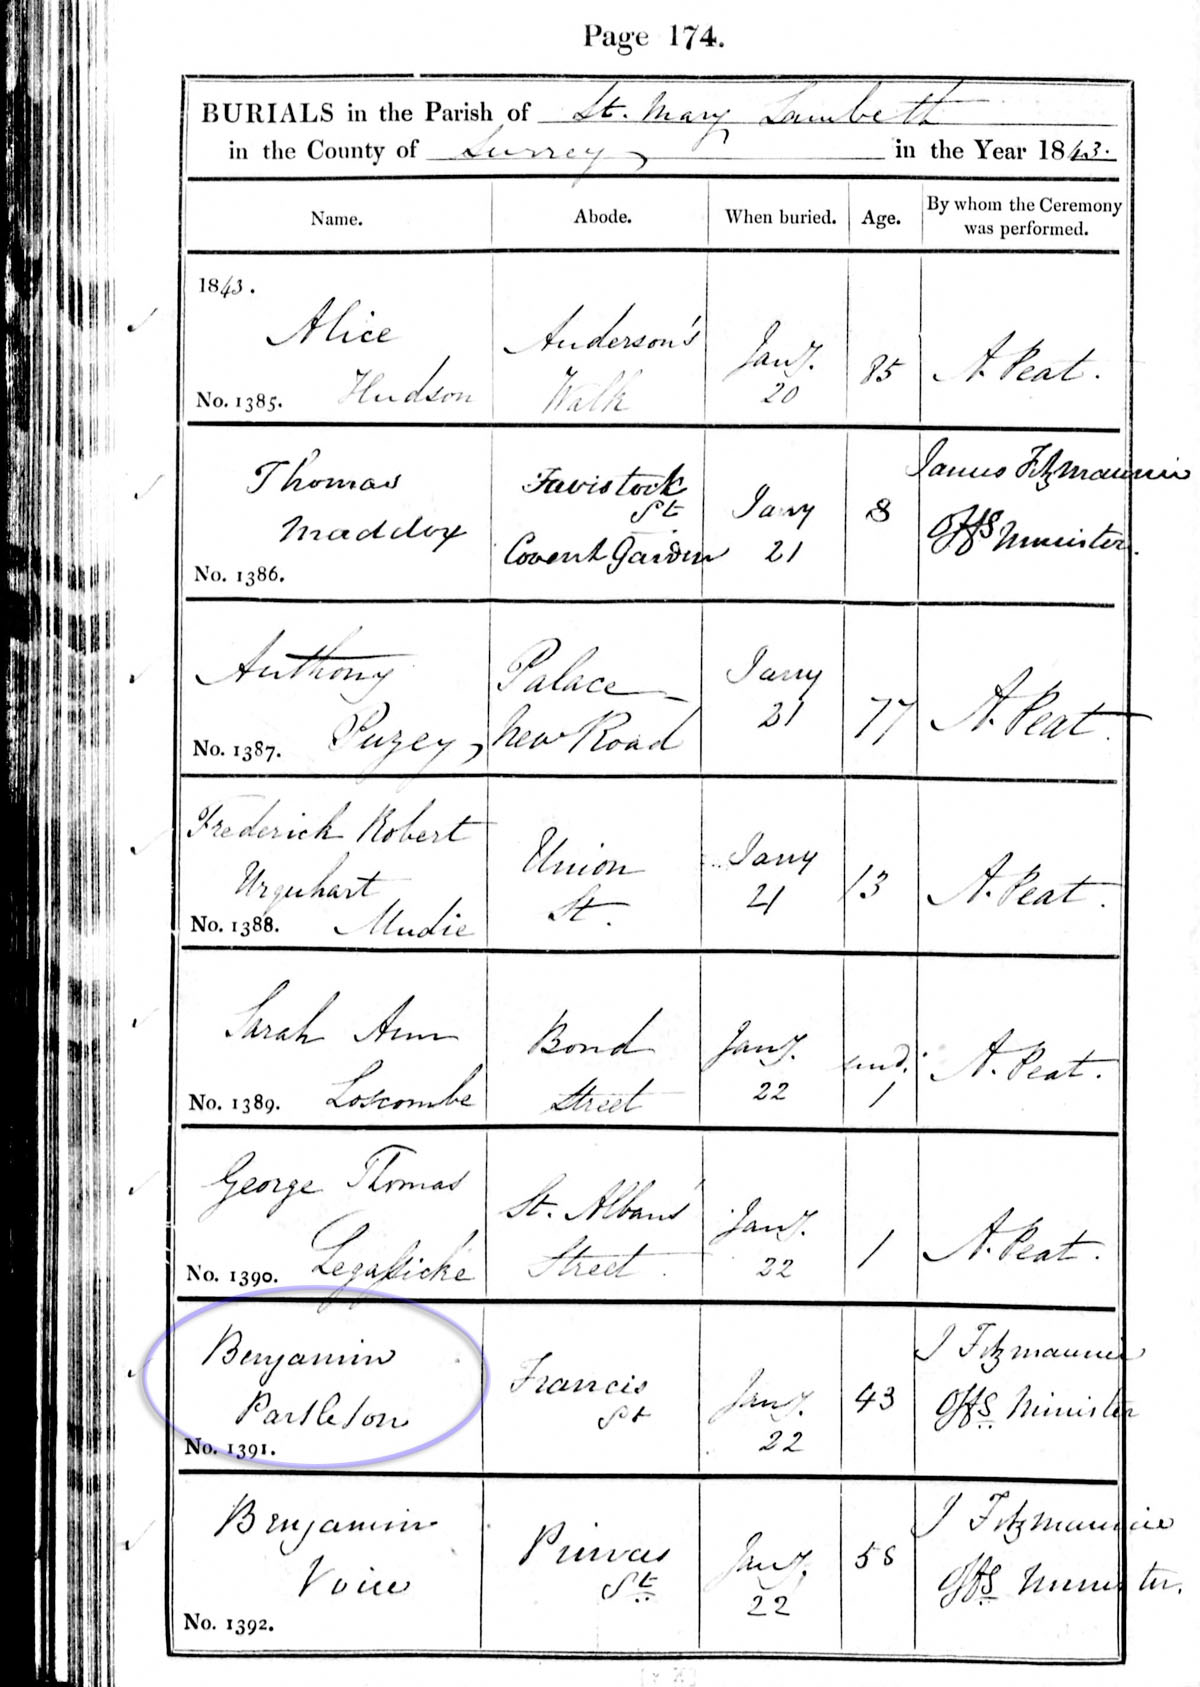 Page 174.
BURIALS in the Parish of St. Mary Lambeth
in the County of Surrey in the Year 1843.
Name. Abode. When buried. Age. By whom the Ceremony was performed.
1843.
Alice Hudson
No. 1385.
Anderson's
Walk
Jany.
20
85
A. Peat.
Thomas
Maddox
No. 1386.
Tavistock
St
Covent Garden
Jany
21
8
James Fitzmaurice
Offg Minister.
Anthony
Puzey
No. 1387.
Palace
New Road
Jany
21
77
A. Peat.
Frederick Robert
Urquhart
Mudie
No. 1388.
Union
St.
Jany
21
13
A. Peat.
Sarah Ann
Loscombe
No. 1389.
Bond
Street
Jany.
22
und.
1
A. Peat.
George Thomas
Legassicke
No. 1390.
St. Albans'
Street
Jany.
22
1
A. Peat.
Benjamin
Partleton
No. 1391.
Francis
St
Jany.
22
43
J Fitzmaurice
Offg Minister
Benjamin
Voice
No. 1392.
Princes
St
Jany.
22
58
J Fitzmaurice
Offg Minister.